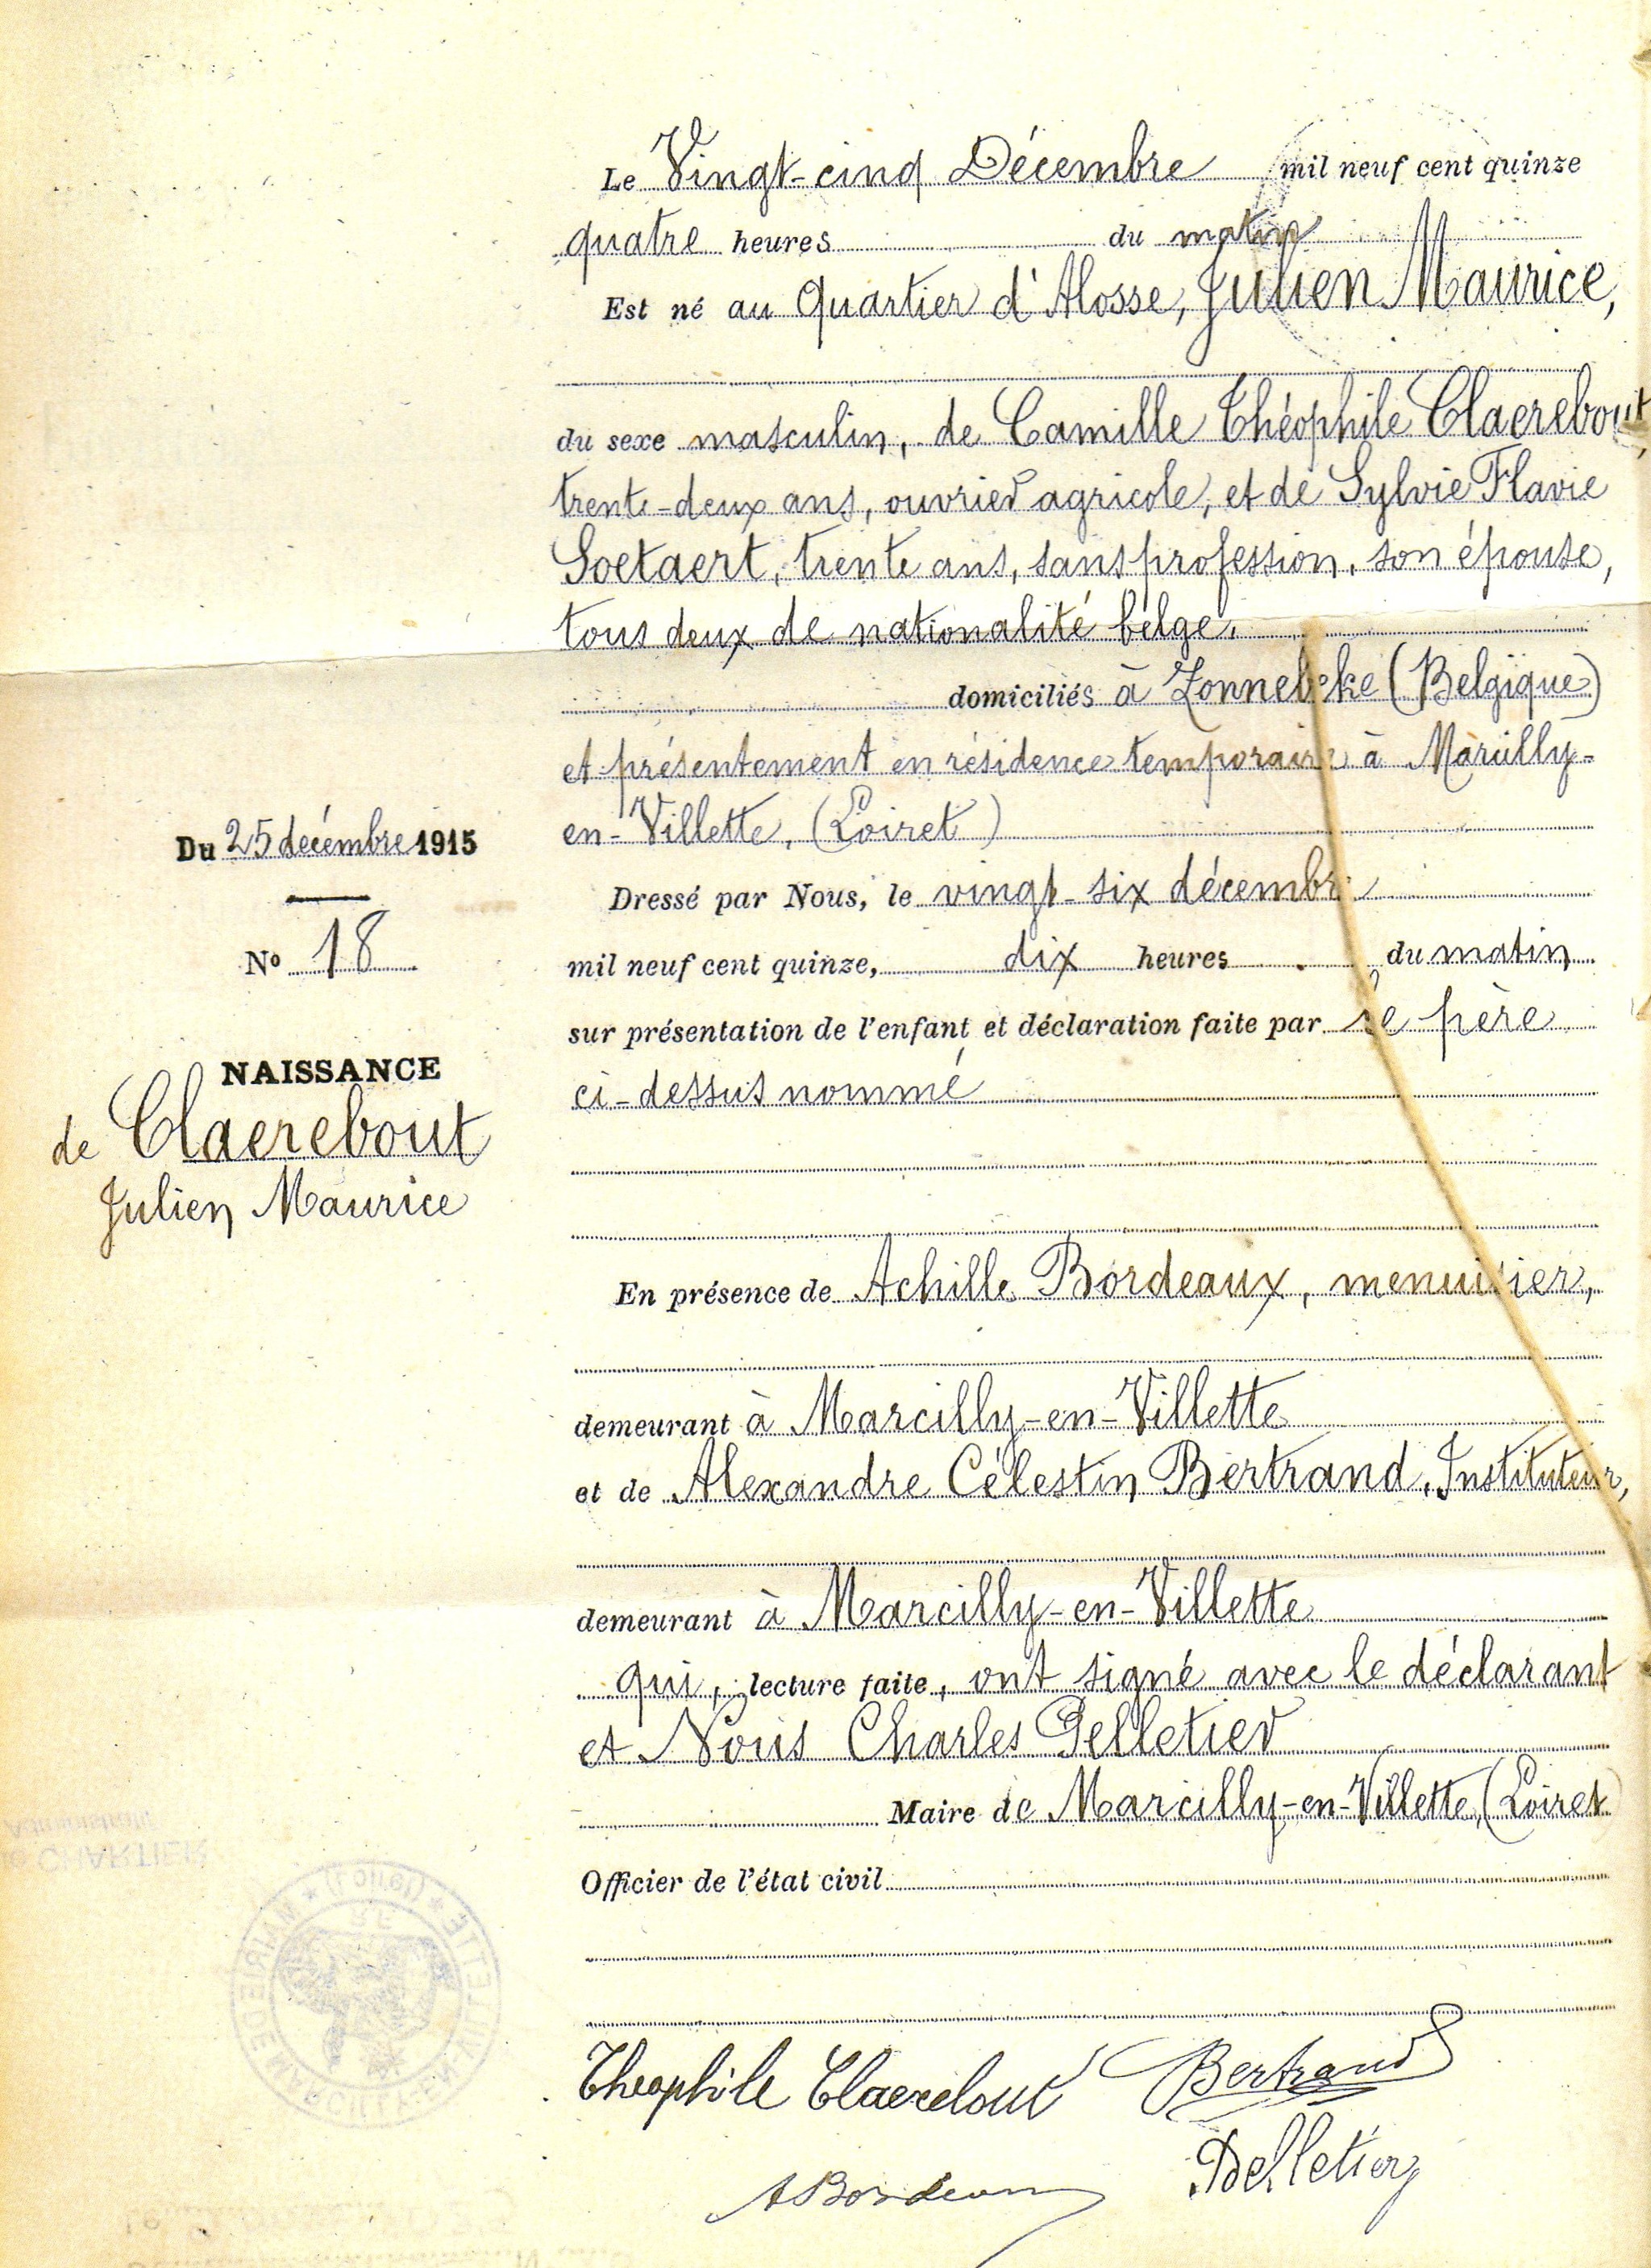 Le Vingt-cinq Décembre mil neuf cent quinze
quatre heures du matin
Est né au Quartier d'Alosse, Julien Maurice,
du sexe masculin, de Camille Théophile Claerebout,
trente-deux ans, ouvrier agricole, et de Sylvie Flavie
Soetaert, trente ans, sans profession, son épouse,
tous deux de nationalité belge,
domiciliés à Zonnebeke (Belgique)
et présentement en résidence temporaire à Marcilly-
en-Villette, (Loiret)
Du 25 décembre 1915
Dressé par Nous, le vingt-six décembre
mil neuf cent quinze, dix heures du matin
No 18
sur présentation de l'enfant et déclaration faite par le père
ci-dessus nommé
NAISSANCE
de Claerebout
Julien Maurice
En présence de Achille Bordeaux, menuisier,
demeurant à Marcilly-en-Villette
et de Alexandre Célestin Bertrand, Instituteur,
demeurant à Marcilly-en-Villette
qui, lecture faite, ont signé avec le déclarant
et Nous Charles Pelletier
Maire de Marcilly-en-Villette, (Loiret)
Officier de l'état civil
MAIRIE DE MARCILLY-EN-VILLETTE (Loiret) R F
Theophile Claerebout Bertrand
ABordeaux Pelletier